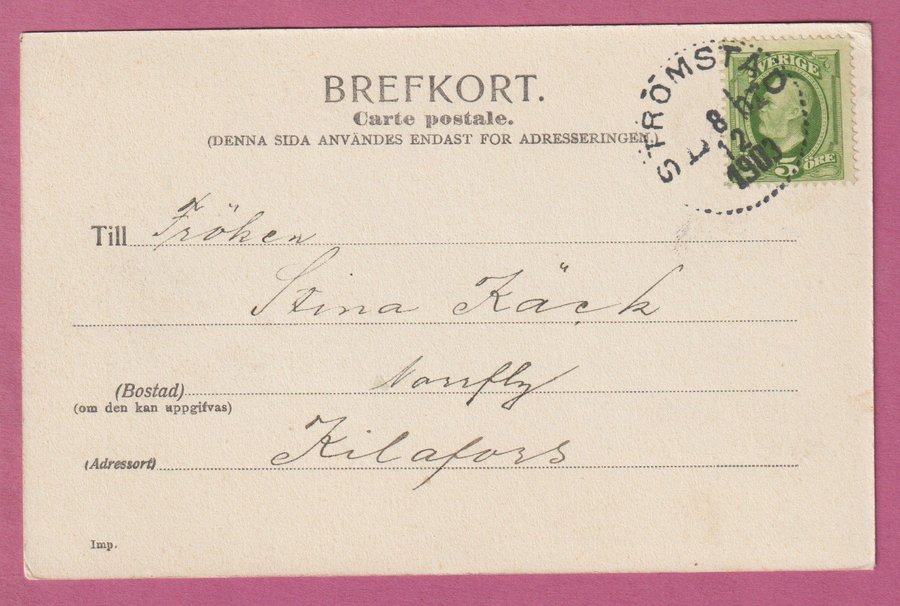 BREFKORT.
Carte postale.
(DENNA SIDA ANVÄNDES ENDAST FÖR ADRESSERINGEN.)
STRÖMSTAD
8
12
1903
SVERIGE
5 ÖRE
Till Fröken
Stina Käck
(Bostad) Norrfly
(om den kan uppgifvas)
(Adressort) Kilafors
Imp.